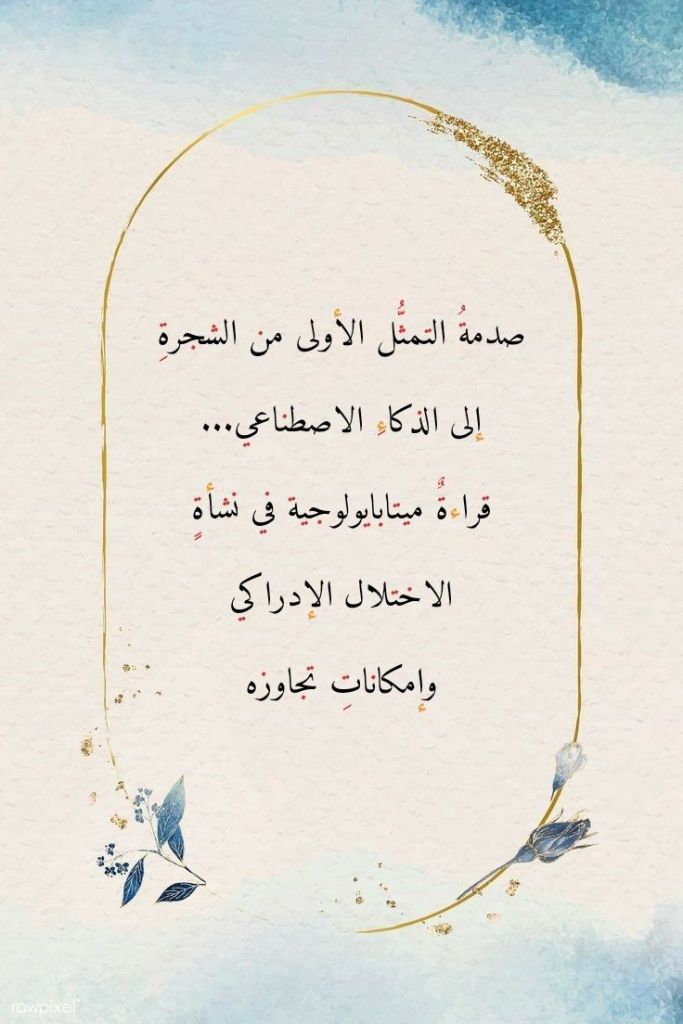 صدمةُ التمثُّل الأولى من الشجرةِ
إلى الذكاءِ الاصطناعي...
قراءةٌ ميتابايولوجية في نشأةٍ
الاختلال الإدراكي
وإمكاناتِ تجاوزه
rawpixel